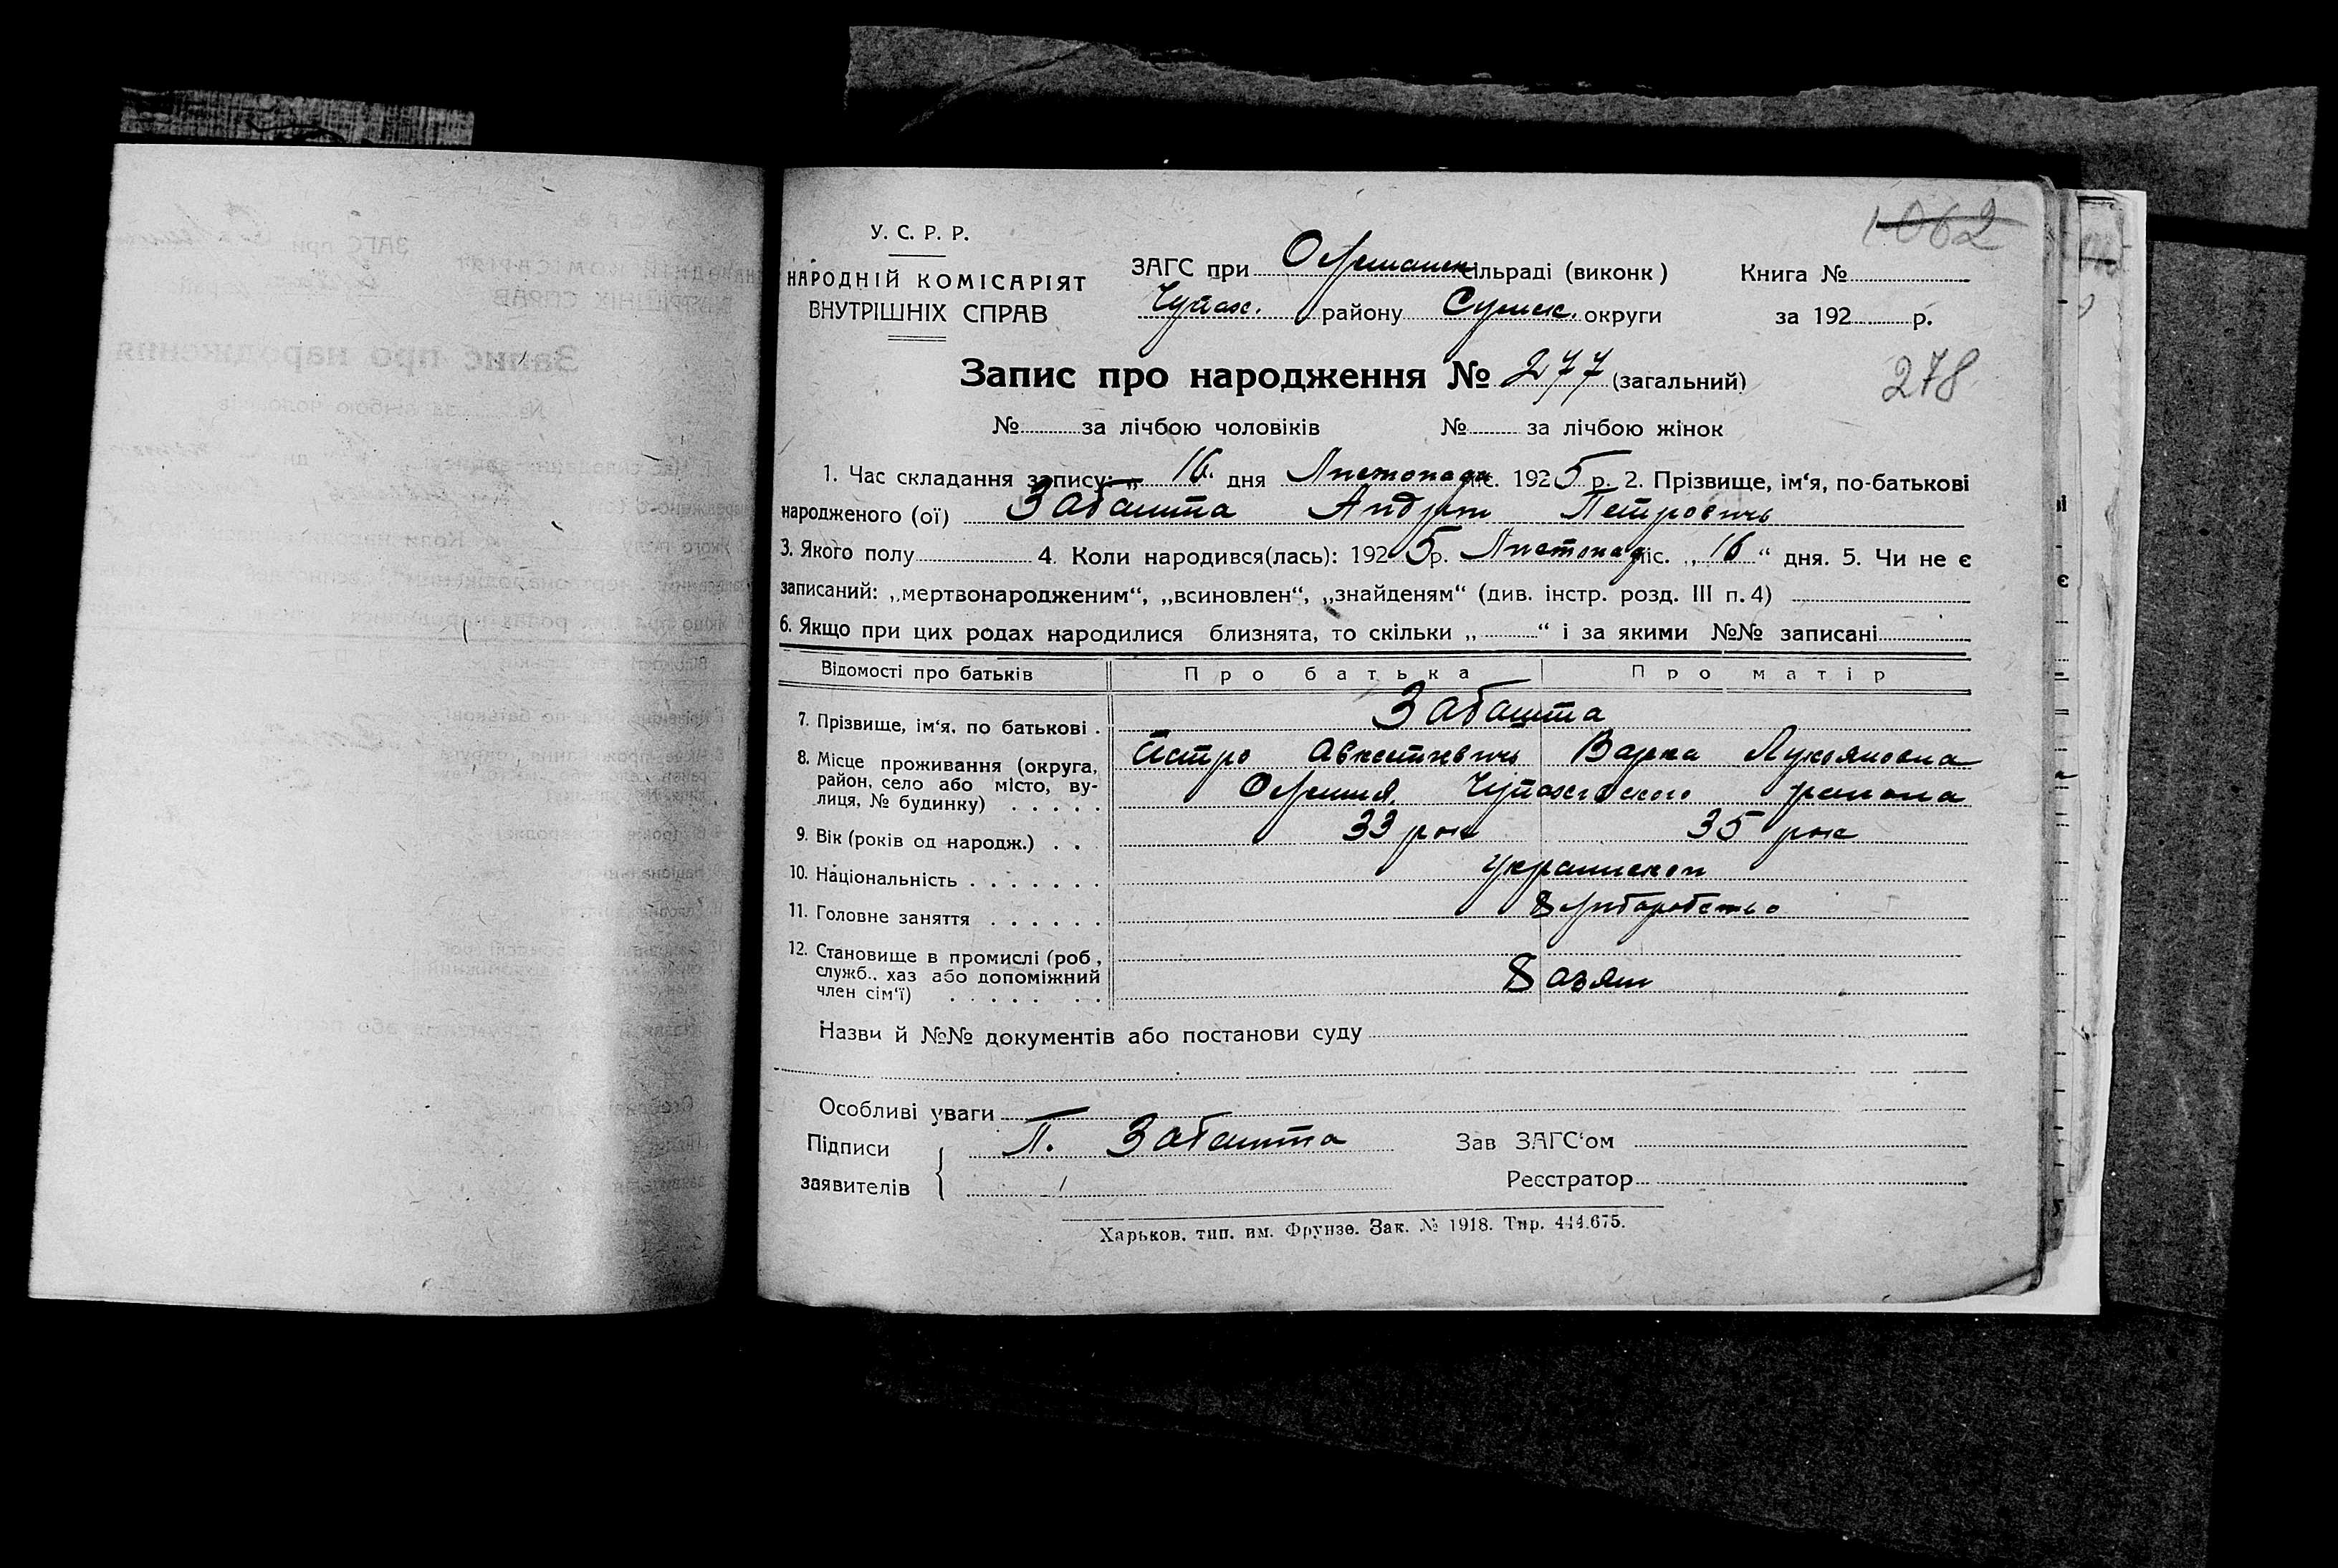 1062
У. С. Р. Р.
НАРОДНІЙ КОМІСАРІЯТ
ВНУТРІШНІХ СПРАВ
ЗАГС при Оѓешанск сільраді (виконк)
Чупах. району Сумск. округи
Книга №
за 192 р.
Запис про народження № 277 (загальний)
278
№ за лічбою чоловіків № за лічбою жінок
1. Час складання запису: „ 16 “ дня Листопада міс. 1925 р. 2. Прізвище, ім‘я, по-батькові
народженого (ої) Забашта Андрій Петровичь
3. Якого полу 4. Коли народився(лась): 1925 р. Листопад міс. „ 16 “ дня. 5. Чи не є
записаний: „мертвонародженим“, „всиновлен“, „знайденям“ (див. інстр. розд. III п. 4)
6. Якщо при цих родах народилися близнята, то скільки „ “ і за якими №№ записані
Відомості про батьків Про батька Про матір
7. Прізвище, ім‘я, по батькові . Забашта
Петро Варка Лукяновна
8. Місце проживання (округа,
район, село або місто, ву-
лиця, № будинку) . . . . . района
9. Вік (років од народж.) . . 33 рок 35 рок
10. Національність . . . . . . . украинскои
11. Головне заняття . . . . . .
12. Становище в промислі (роб ,
служб.. хаз або допоміжний
член сім‘ї) . . . . . . .
Назви й №№ документів або постанови суду
Особливі уваги
Підписи П. Забашта Зав ЗАГС‘ом
заявителів Реєстратор
Харьков. тип. им. Фрунзе. Зак. № 1918. Тир. 444.675.